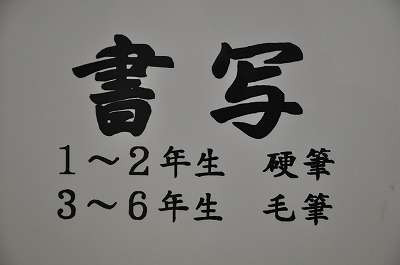 書写
１～２年生　硬筆
３～６年生　毛筆